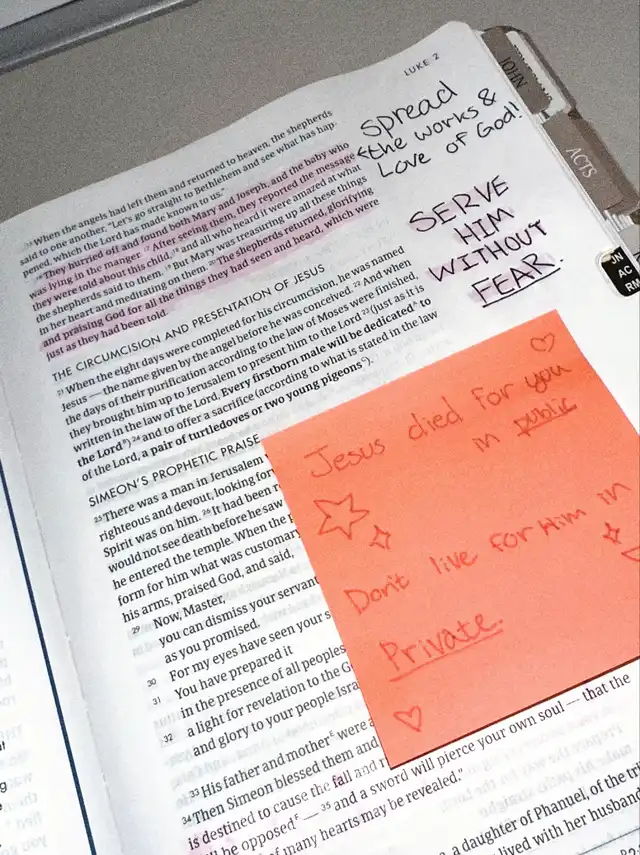 LUKE 2
15 When the angels had left them and returned to heaven, the shepherds
said to one another, "Let's go straight to Bethlehem and see what has hap-
pened, which the Lord has made known to us."
16 They hurried off and found both Mary and Joseph, and the baby who
was lying in the manger. 17 After seeing them, they reported the message
they were told about this child, 18 and all who heard it were amazed at what
the shepherds said to them. 19 But Mary was treasuring up all these things
in her heart and meditating on them. 20 The shepherds returned, glorifying
and praising God for all the things they had seen and heard, which were
just as they had been told.
THE CIRCUMCISION AND PRESENTATION OF JESUS
21 When the eight days were completed for his circumcision, he was named
Jesus — the name given by the angel before he was conceived. 22 And when
the days of their purification according to the law of Moses were finished,
they brought him up to Jerusalem to present him to the Lord 23 (just as it is
written in the law of the Lord, Every firstborn male will be dedicated to
the Lord) 24 and to offer a sacrifice (according to what is stated in the law
of the Lord, a pair of turtledoves or two young pigeons).
SIMEON'S PROPHETIC PRAISE
25 There was a man in Jerusalem
righteous and devout, looking for
Spirit was on him. 26 It had been
would not see death before he saw
he entered the temple. When the
form for him what was customary
his arms, praised God, and said,
29 Now, Master,
you can dismiss your servant
as you promised.
30 For my eyes have seen your
31 You have prepared it
in the presence of all peoples
32 a light for revelation to the
and glory to your people
33 His father and mother were
34 Then Simeon blessed them and
is destined to cause the fall and
be opposed — 35 and a sword will pierce your own soul — that the
of many hearts may be revealed."
a daughter of Phanuel, of the
lived with her husband
spread
←the works &
Love of God!
SERVE
HIM
WITHOUT
FEAR.
Jesus died for you
in public
Don't live for Him in
Private.
JOHN
ACTS
JN
AC
RM